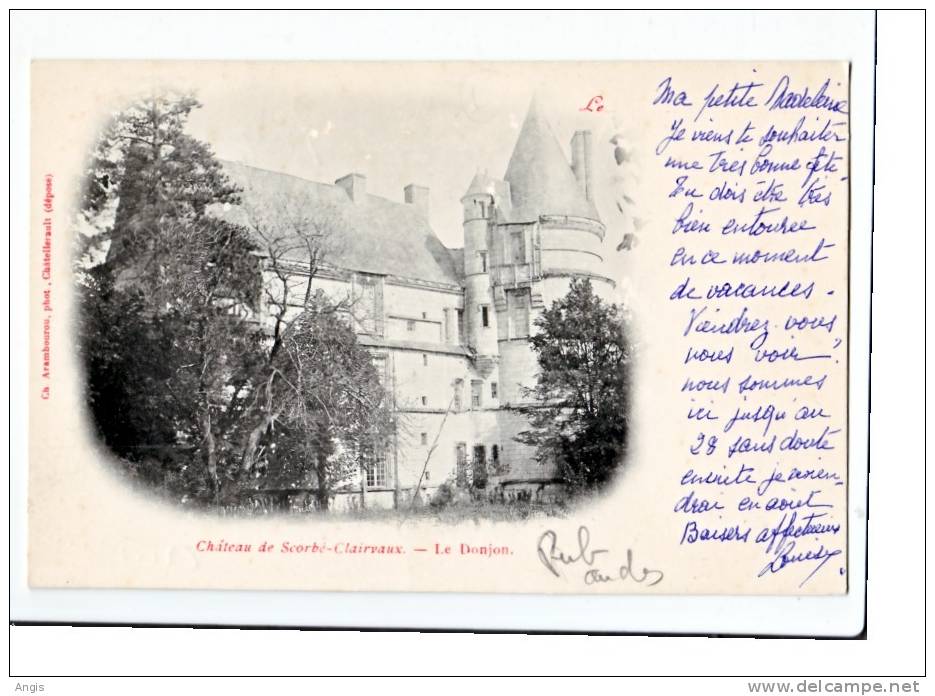 Le
Ma petite Madeleine
Je viens te souhaiter
une très bonne fête.
Tu dois être très
bien entourée
en ce moment
de vacances.
Viendrez-vous
nous voir ?
nous sommes
ici jusqu'au
28 sans doute
ensuite je revien-
drai en août
Baisers affectueux
Louise
Ch. Arambourou, phot., Châtellerault (déposé)
Château de Scorbé-Clairvaux. — Le Donjon.
Angis
www.delcampe.net